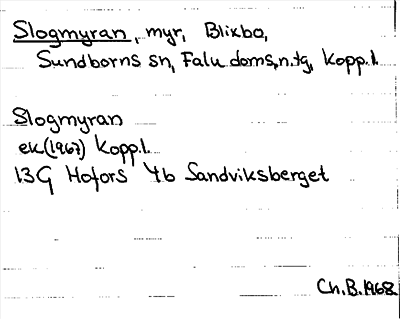 Slogmyran, myr, Blixbo,
Sundborns sn, Falu doms.n.tg, Kopp.l.
Slogmyran
ek(1967) Kopp.l.
13G Hofors 4b Sandviksberget
Ch.B.1968